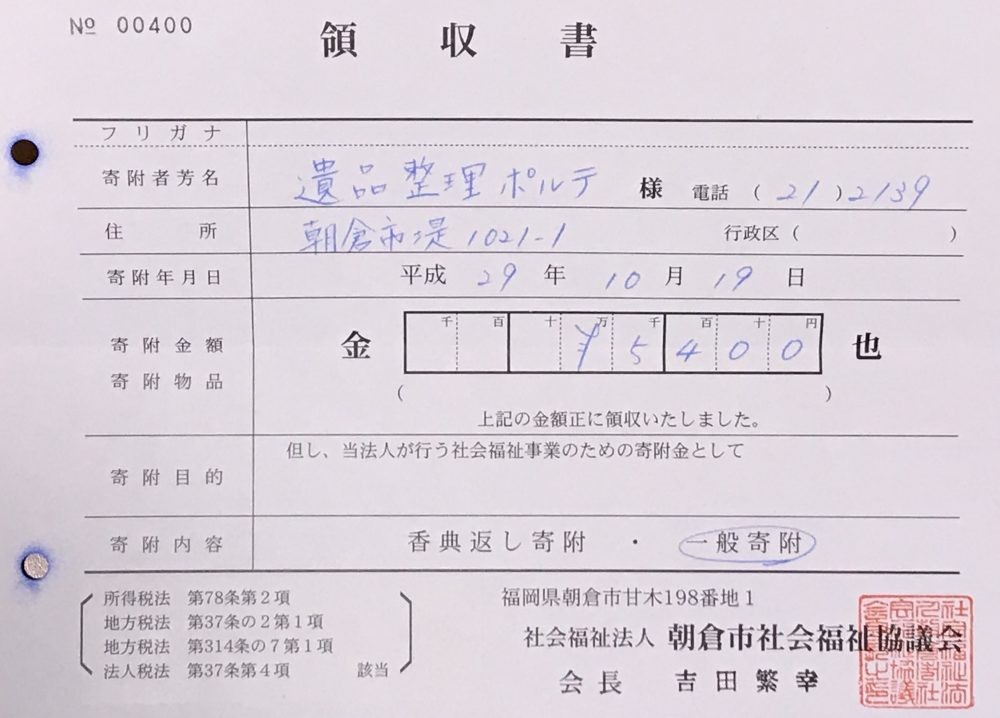 № 00400
領収書
フリガナ
寄附者芳名 遺品整理ポルテ 様 電話 (21)2139
住所 朝倉市堤1021-1 行政区( )
寄附年月日 平成 29 年 10 月 19 日
千 百 十 万 千 百 十 円
寄附金額 金 ¥5400 也
寄附物品 ( )
上記の金額正に領収いたしました。
但し、当法人が行う社会福祉事業のための寄附金として
寄附目的
寄附内容 香典返し寄附 ・ 一般寄附
所得税法 第78条第2項
地方税法 第37条の2第1項
地方税法 第314条の7第1項
法人税法 第37条第4項 該当
福岡県朝倉市甘木198番地1
社会福祉法人 朝倉市社会福祉協議会
会長 吉田繁幸